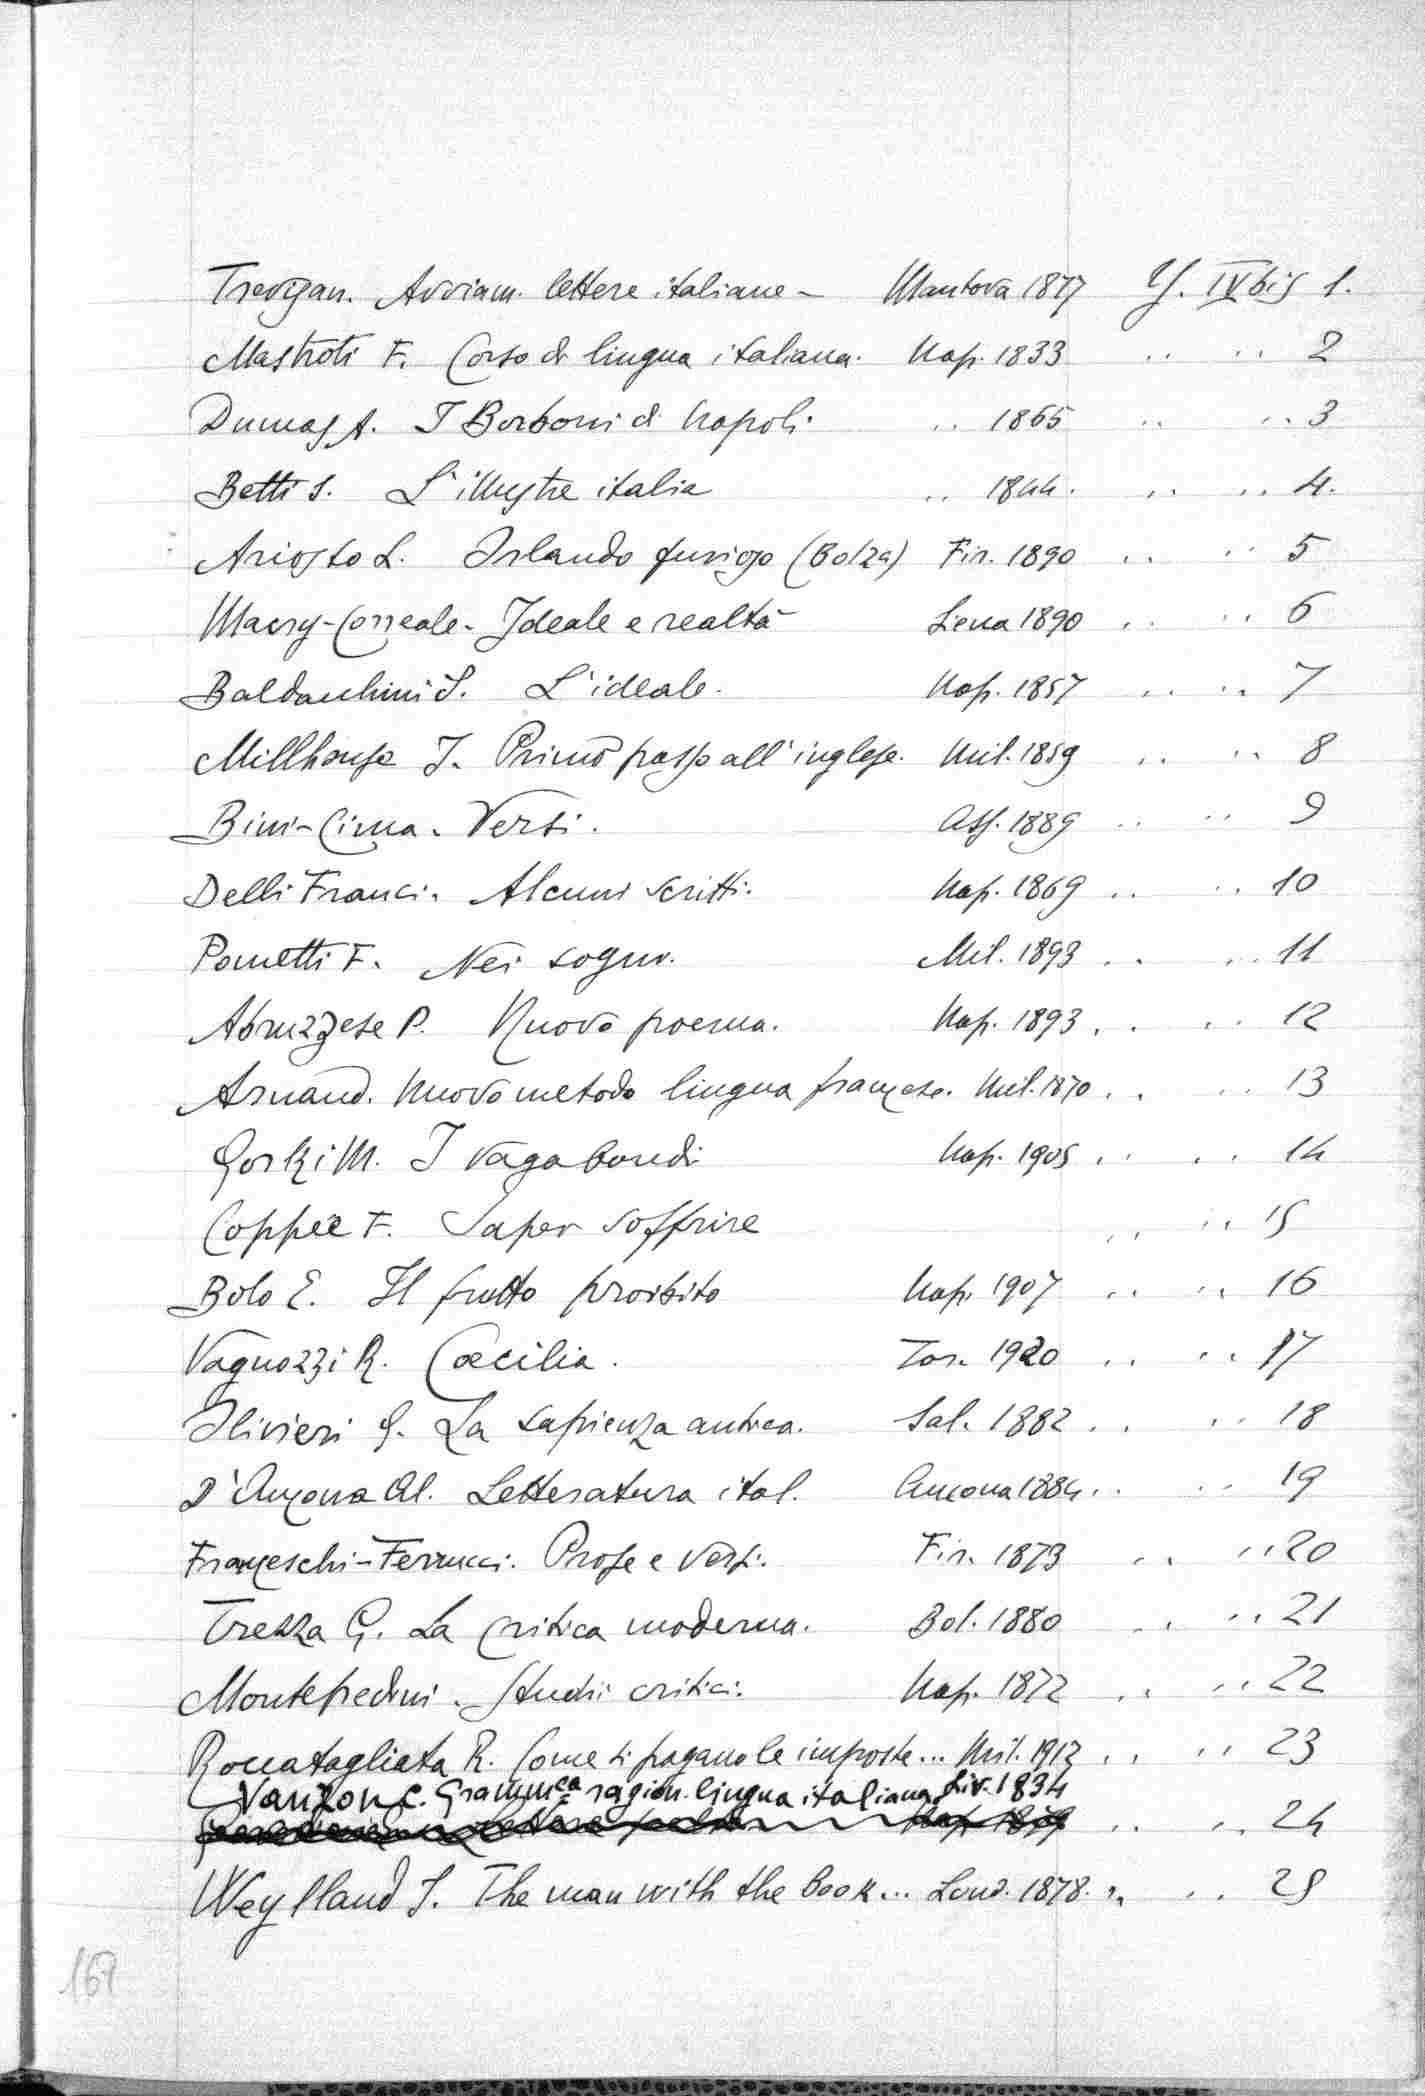 Trevisan. Avviam. lettere italiane - Mantova 1877 Y. IV bis 1.
Mastroti F. Corso di lingua italiana. Nap. 1833 .. .. 2
Dumas A. I Borboni di Napoli. .. 1865 .. .. 3
Betti S. L'illustre italia .. 1844. .. .. 4.
Ariosto L. Orlando furioso (Bolza) Fir. 1890 .. .. 5
Maery-Correale. Ideale e realtà Siena 1890 .. .. 6
Baldacchini S. L'ideale. Nap. 1857 .. .. 7
Millhouse J. Primo passo all'inglese. Mil. 1859 .. .. 8
Bini-Cima. Versi. Ass. 1889 .. .. 9
Delli Franci. Alcuni scritti. Nap. 1869 .. .. 10
Pometti F. Nei sogni. Mil. 1893 .. .. 11
Abruzzese P. Nuovo poema. Nap. 1893 .. .. 12
Arnaud. Nuovo metodo lingua francese. Mil. 1870 .. .. 13
Gorki M. I vagabondi Nap. 1905 .. .. 14
Coppée F. Saper soffrire .. .. 15
Bolo E. Il frutto proibito Nap. 1907 .. .. 16
Vagnozzi R. Cæcilia. Tor. 1920 .. .. 17
Olivieri G. La sapienza antica. Sal. 1882 .. .. 18
D'Ancona Al. Letteratura ital. Ancona 1884 .. .. 19
Franceschi-Ferrucci. Prose e versi. Fir. 1873 .. .. 20
Trezza G. La critica moderna. Bol. 1880 .. .. 21
Montefredini. Studii critici. Nap. 1872 .. .. 22
Roccatagliata R. Come si pagano le imposte... Mil. 1912 .. .. 23
Vanzon C. Gramm.ca ragion. lingua italiana, Liv. 1834
.. .. 24
Weylland J. The man with the book... Lond. 1878. .. .. 25
169